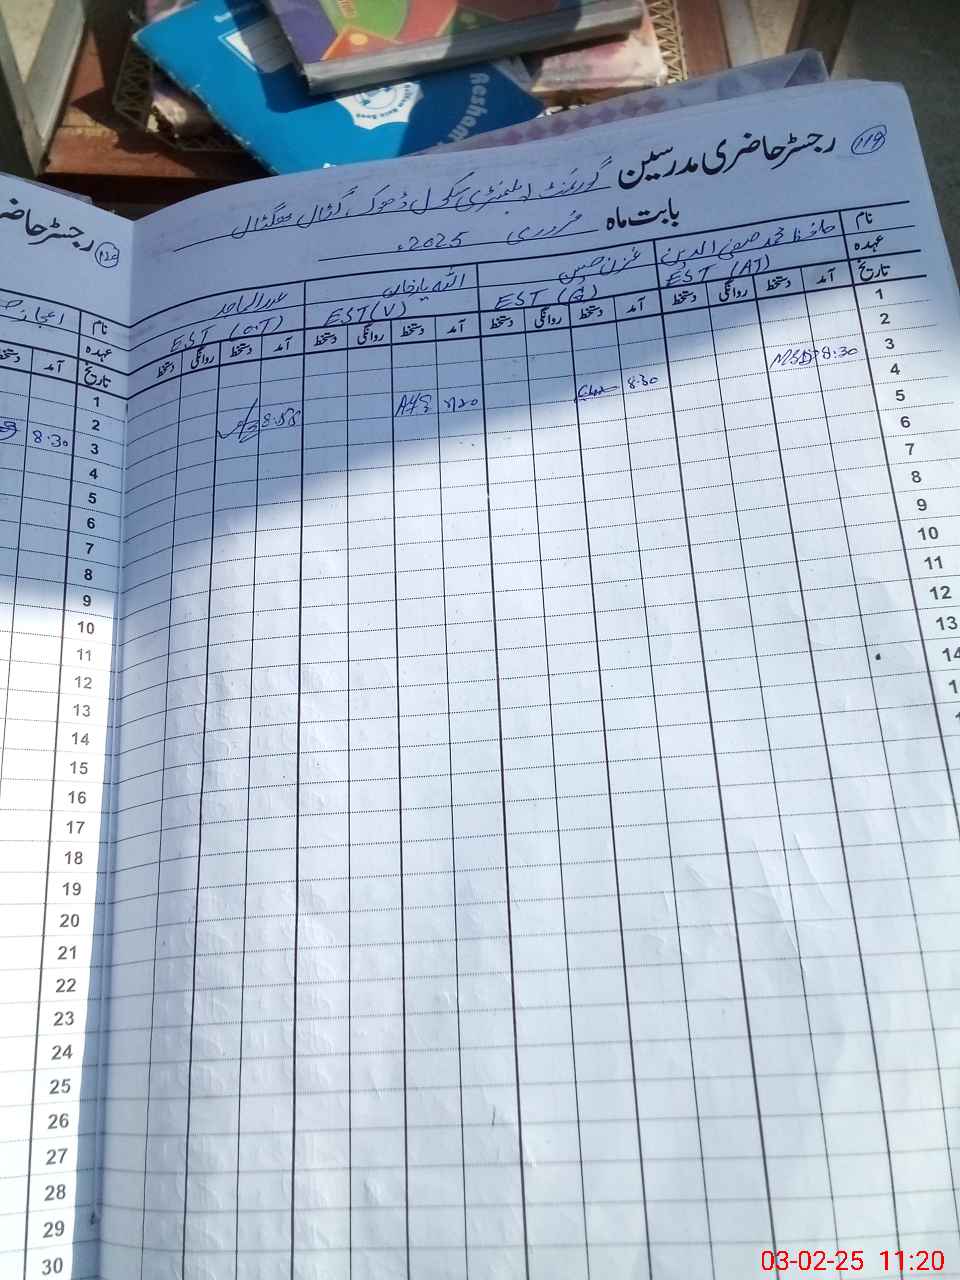 Resham
رجسٹر حاضری مدرسین
119
گورنمنٹ ایلیمنٹری سکول ڈھوک گٹال بھگٹال
بابت ماہ فروری 2025ء
رجسٹر حاضر
120
نام حافظ محمد صفی الدین اللہ یار خان عبدالماجد
عہدہ EST (AT) EST (V) EST (O.T)
تاریخ آمد دستخط روانگی دستخط آمد دستخط روانگی دستخط آمد دستخط روانگی دستخط آمد دستخط روانگی دستخط
1
2
3 8:30 8:30 8:55
4
5
6
7
8
9
10
11
12
13
14
نام اعجاز
عہدہ
تاریخ آمد
1
2
3 8:30
4
5
6
7
8
9
10
11
12
13
14
15
16
17
18
19
20
21
22
23
24
25
26
27
28
29
30
03-02-25 11:20